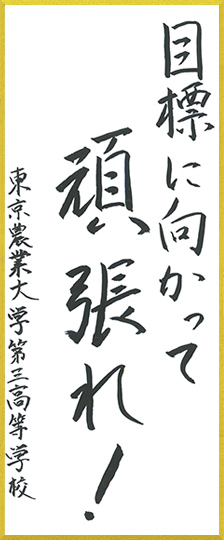 目標に向かって
頑張れ！
東京農業大学第三高等学校